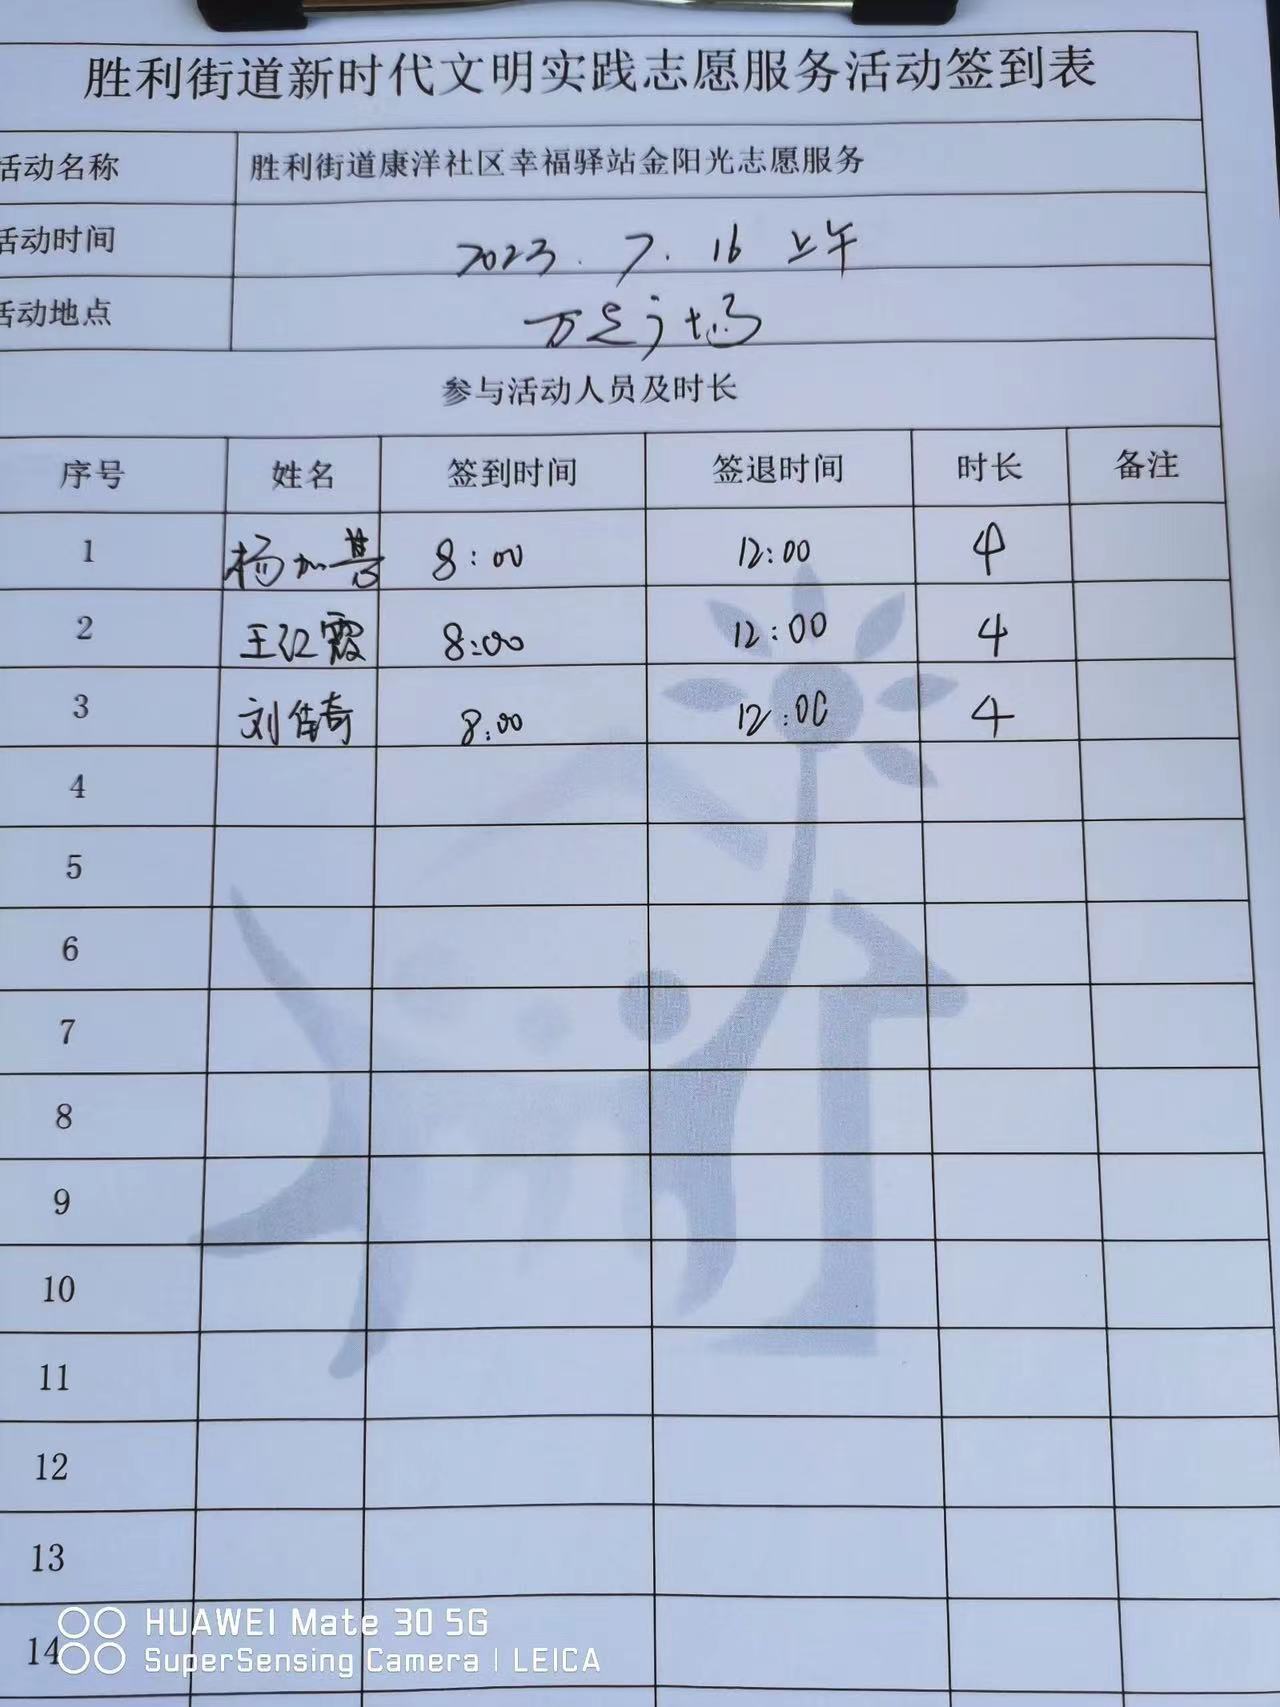 胜利街道新时代文明实践志愿服务活动签到表
活动名称 胜利街道康洋社区幸福驿站金阳光志愿服务
活动时间 2023.7.16 上午
活动地点 万达广场
参与活动人员及时长
序号 姓名 签到时间 签退时间 时长 备注
1 杨加慧 8:00 12:00 4
2 王红霞 8:00 12:00 4
3 刘传奇 8:00 12:00 4
4
5
6
7
8
9
10
11
12
13
14
HUAWEI Mate 30 5G
SuperSensing Camera | LEICA